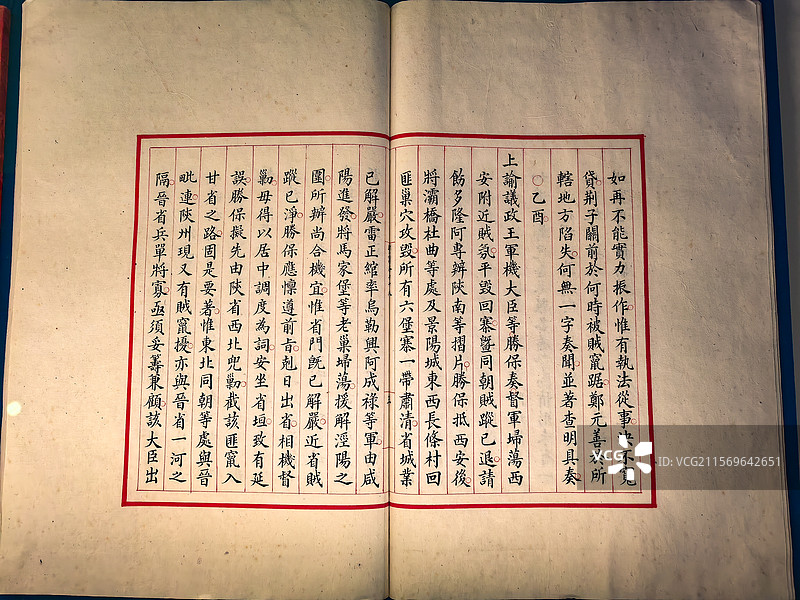 如再不能實力振作惟有執法從事決不寬
貸荆子關前於何時被賊竄踞鄭元善於所
轄地方陷失何無一字奏聞並著查明具奏
乙酉
上諭議政王軍機大臣等勝保奏督軍埽蕩西
安附近賊氛平毀回寨暨同朝賊蹤已退請
飭多隆阿專辦陝南等摺片勝保抵西安後
將灞橋杜曲等處及景陽城東西長條村回
匪巢穴攻毀所有六堡寨一帶肅清省城業
已解嚴雷正綰率烏勒興阿成祿等軍由咸
陽進發將馬家堡等老巢埽蕩援解涇陽之
圍所辦尚合機宜惟省門旣已解嚴近省賊
蹤已淨勝保應懍遵前旨剋日出省相機督
勦毋得以居中調度為詞安坐省垣致有延
誤勝保擬先由陝省西北兜勦截該匪竄入
甘省之路固是要著惟東北同朝等處與晉
毗連陝州現又有賊竄擾亦與晉省一河之
隔晉省兵單將寡亟須妥籌兼顧該大臣出
視覺中國
VCG
ID: VCG211569642651